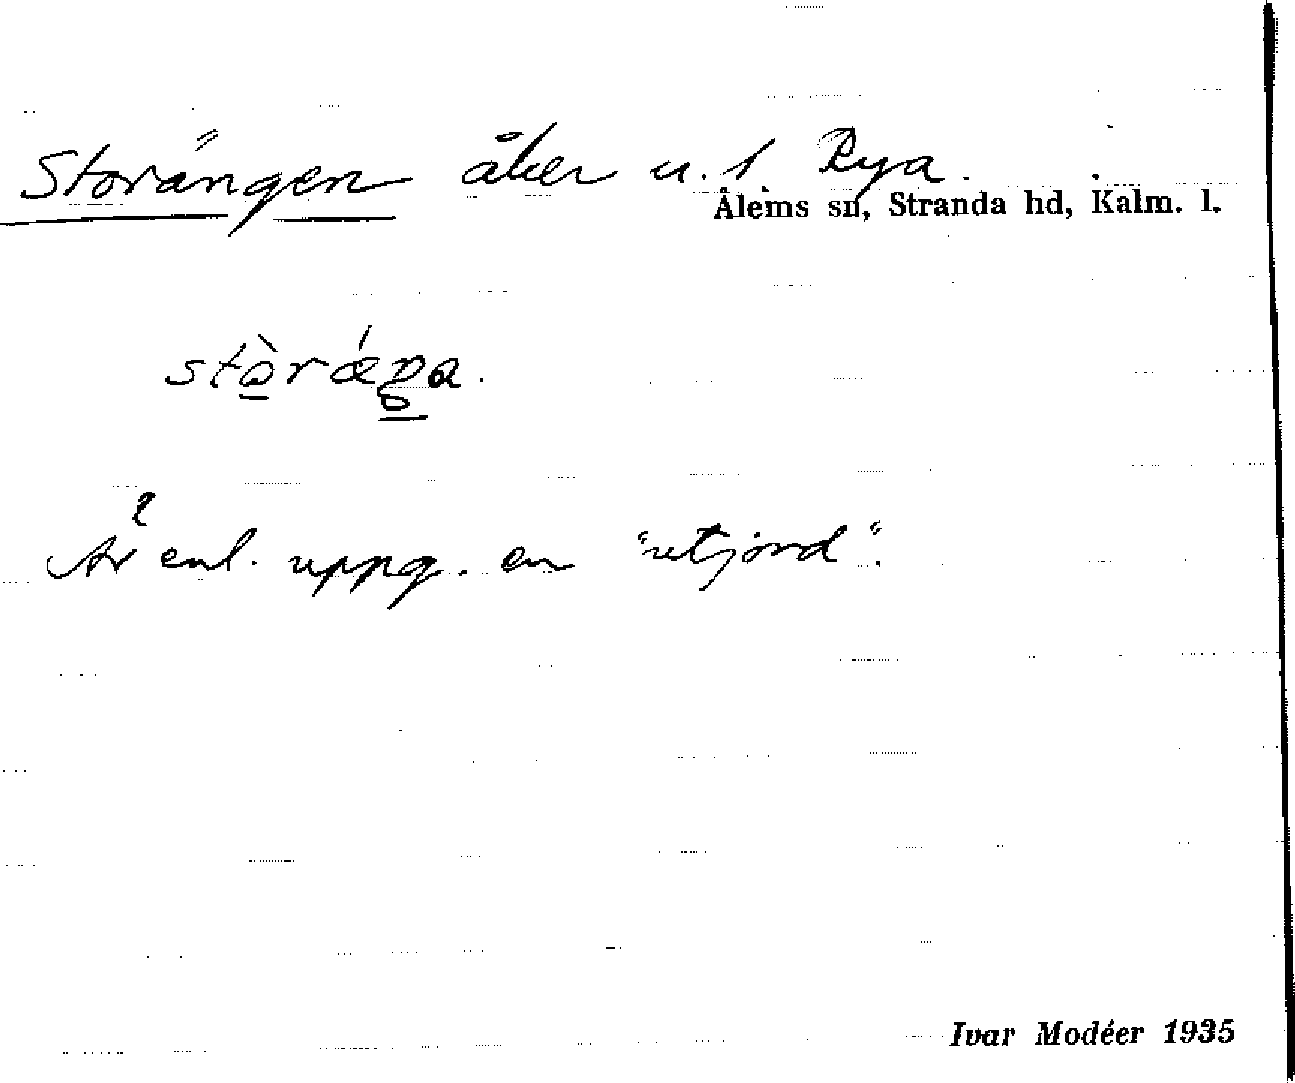 Storängen åker u. 1 Rya.
Ålems sn, Stranda hd, Kalm. l.
stò̱rǽŋa.
Är enl. uppg. en "utjord".
Ivar Modéer 1935